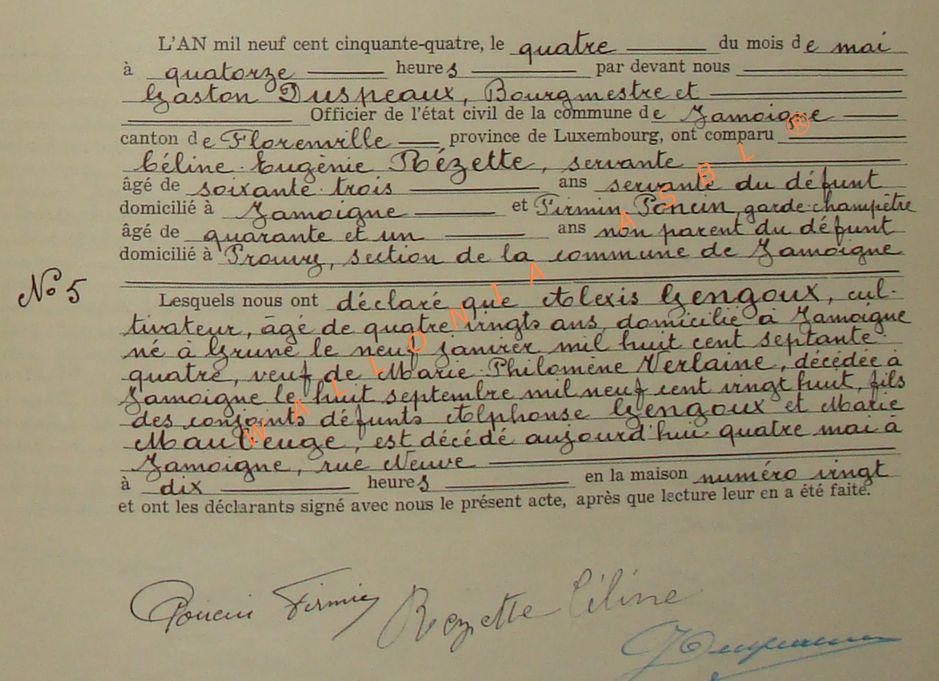 L'AN mil neuf cent cinquante-quatre, le quatre du mois de mai
à quatorze heures par devant nous
Gaston Duspeaux, Bourgmestre et
Officier de l'état civil de la commune de Jamoigne
canton de Florenville province de Luxembourg, ont comparu
Céline Eugénie Rézette, servante
âgé de soixante trois ans servante du défunt
domicilié à Jamoigne et Firmin Poncin, garde-champêtre
âgé de quarante et un ans non parent du défunt
domicilié à Prouvy, section de la commune de Jamoigne
No 5
Lesquels nous ont déclaré que Alexis Gengoux, cul-
tivateur, âgé de quatre vingts ans, domicilié à Jamoigne
né à Grune le neuf janvier mil huit cent septante
quatre, veuf de Marie Philomène Verlaine, décédée à
Jamoigne le huit septembre mil neuf cent vingt huit, fils
des conjoints défunts Alphonse Gengoux et Marie
Maubeuge, est décédé aujourd'hui quatre mai à
Jamoigne, rue Neuve
à dix heures en la maison numéro vingt
et ont les déclarants signé avec nous le présent acte, après que lecture leur en a été faite.
Poncin Firmin Rezette Céline
WALLONIA ASBL ®